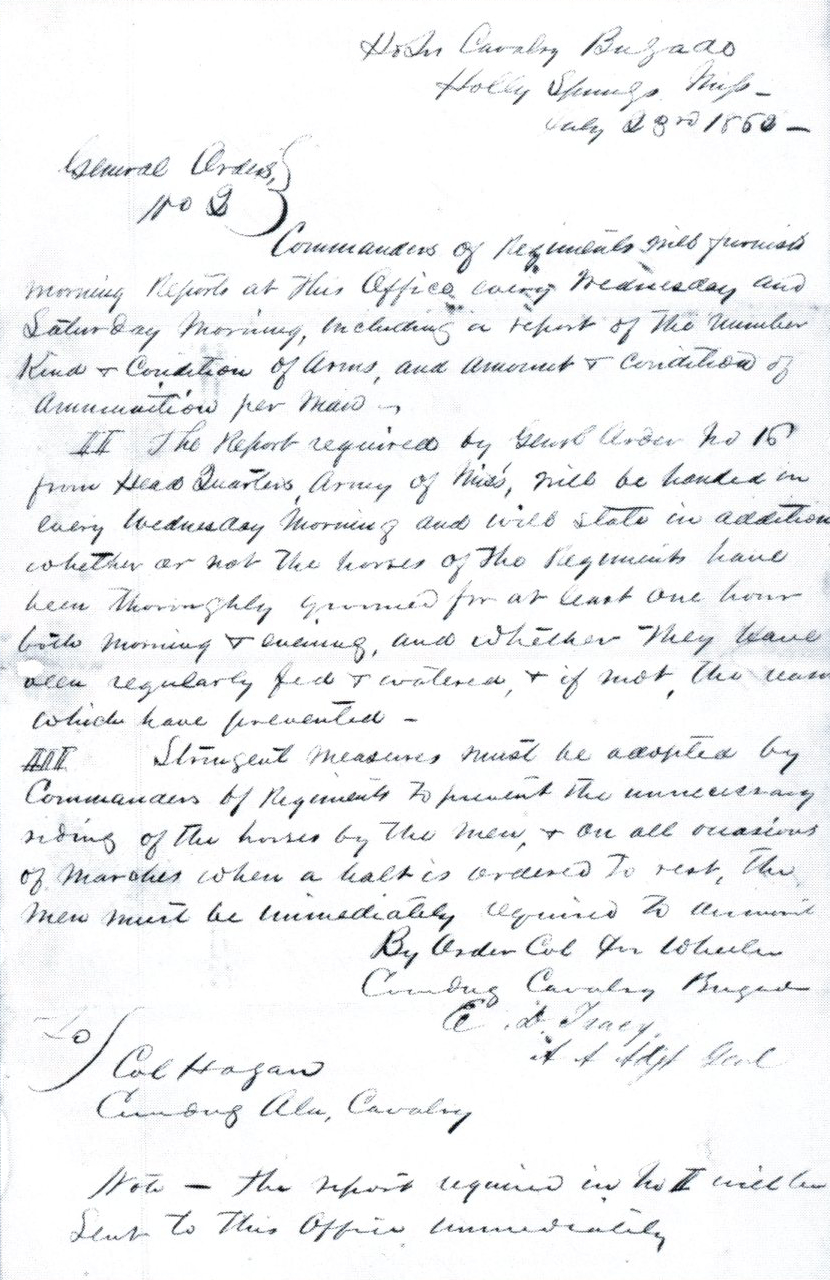 Hd Qrs Cavalry Brigade
Holly Springs Miss –
July 23rd 1862 –
General Orders,
No 2
Commanders of Regiments will furnish
Morning Reports at this Office every Wednesday and
Saturday Morning, including a report of the number
Kind & Condition of Arms, and amount & condition of
Ammunition per Man –
II The Report required by Genrl Order No 16
from Head Quarters, Army of Miss, will be handed in
every Wednesday Morning and will state in addition
whether or not the horses of the Regiments have
been thoroughly groomed for at least one hour
both morning & evening, and whether they have
been regularly fed & watered, & if not, the reason
which have prevented –
III Stringent measures must be adopted by
Commanders of Regiments to prevent the unnecessary
riding of the horses by the men, & on all occasions
of Marches when a halt is ordered to rest, the
Men must be immediately required to dismount
By Order Col Wheeler
Comdng Cavalry Brigade
E. D. Tracy,
A A Adjt Genl
To
Col Hagan
Comdng Ala, Cavalry
Note – the report required in No II will be
Sent to this Office immediately